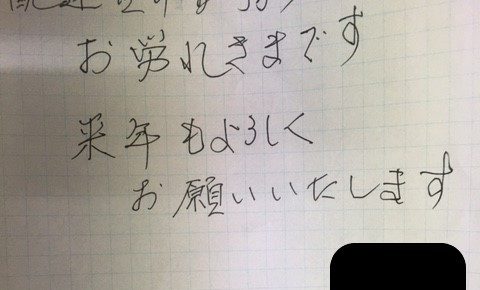 お労れさまです
来年もよろしく
お願いいたします